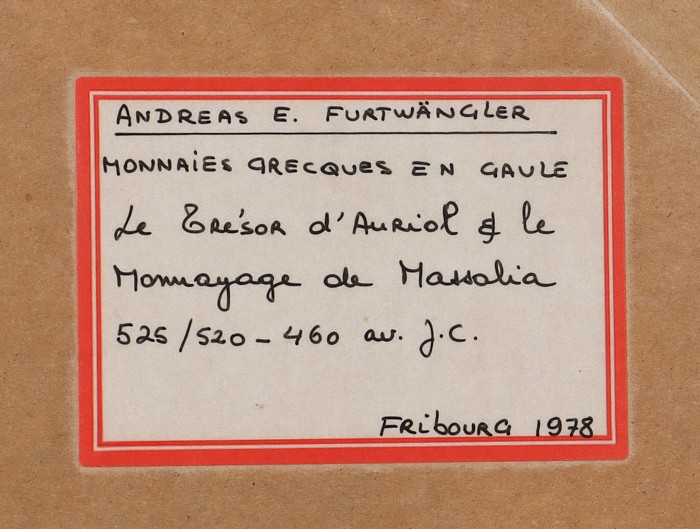 ANDREAS E. FURTWÄNGLER
MONNAIES GRECQUES EN GAULE
Le Trésor d'Auriol & le
Monnayage de Massalia
525/520 - 460 av. J.C.
Fribourg 1978